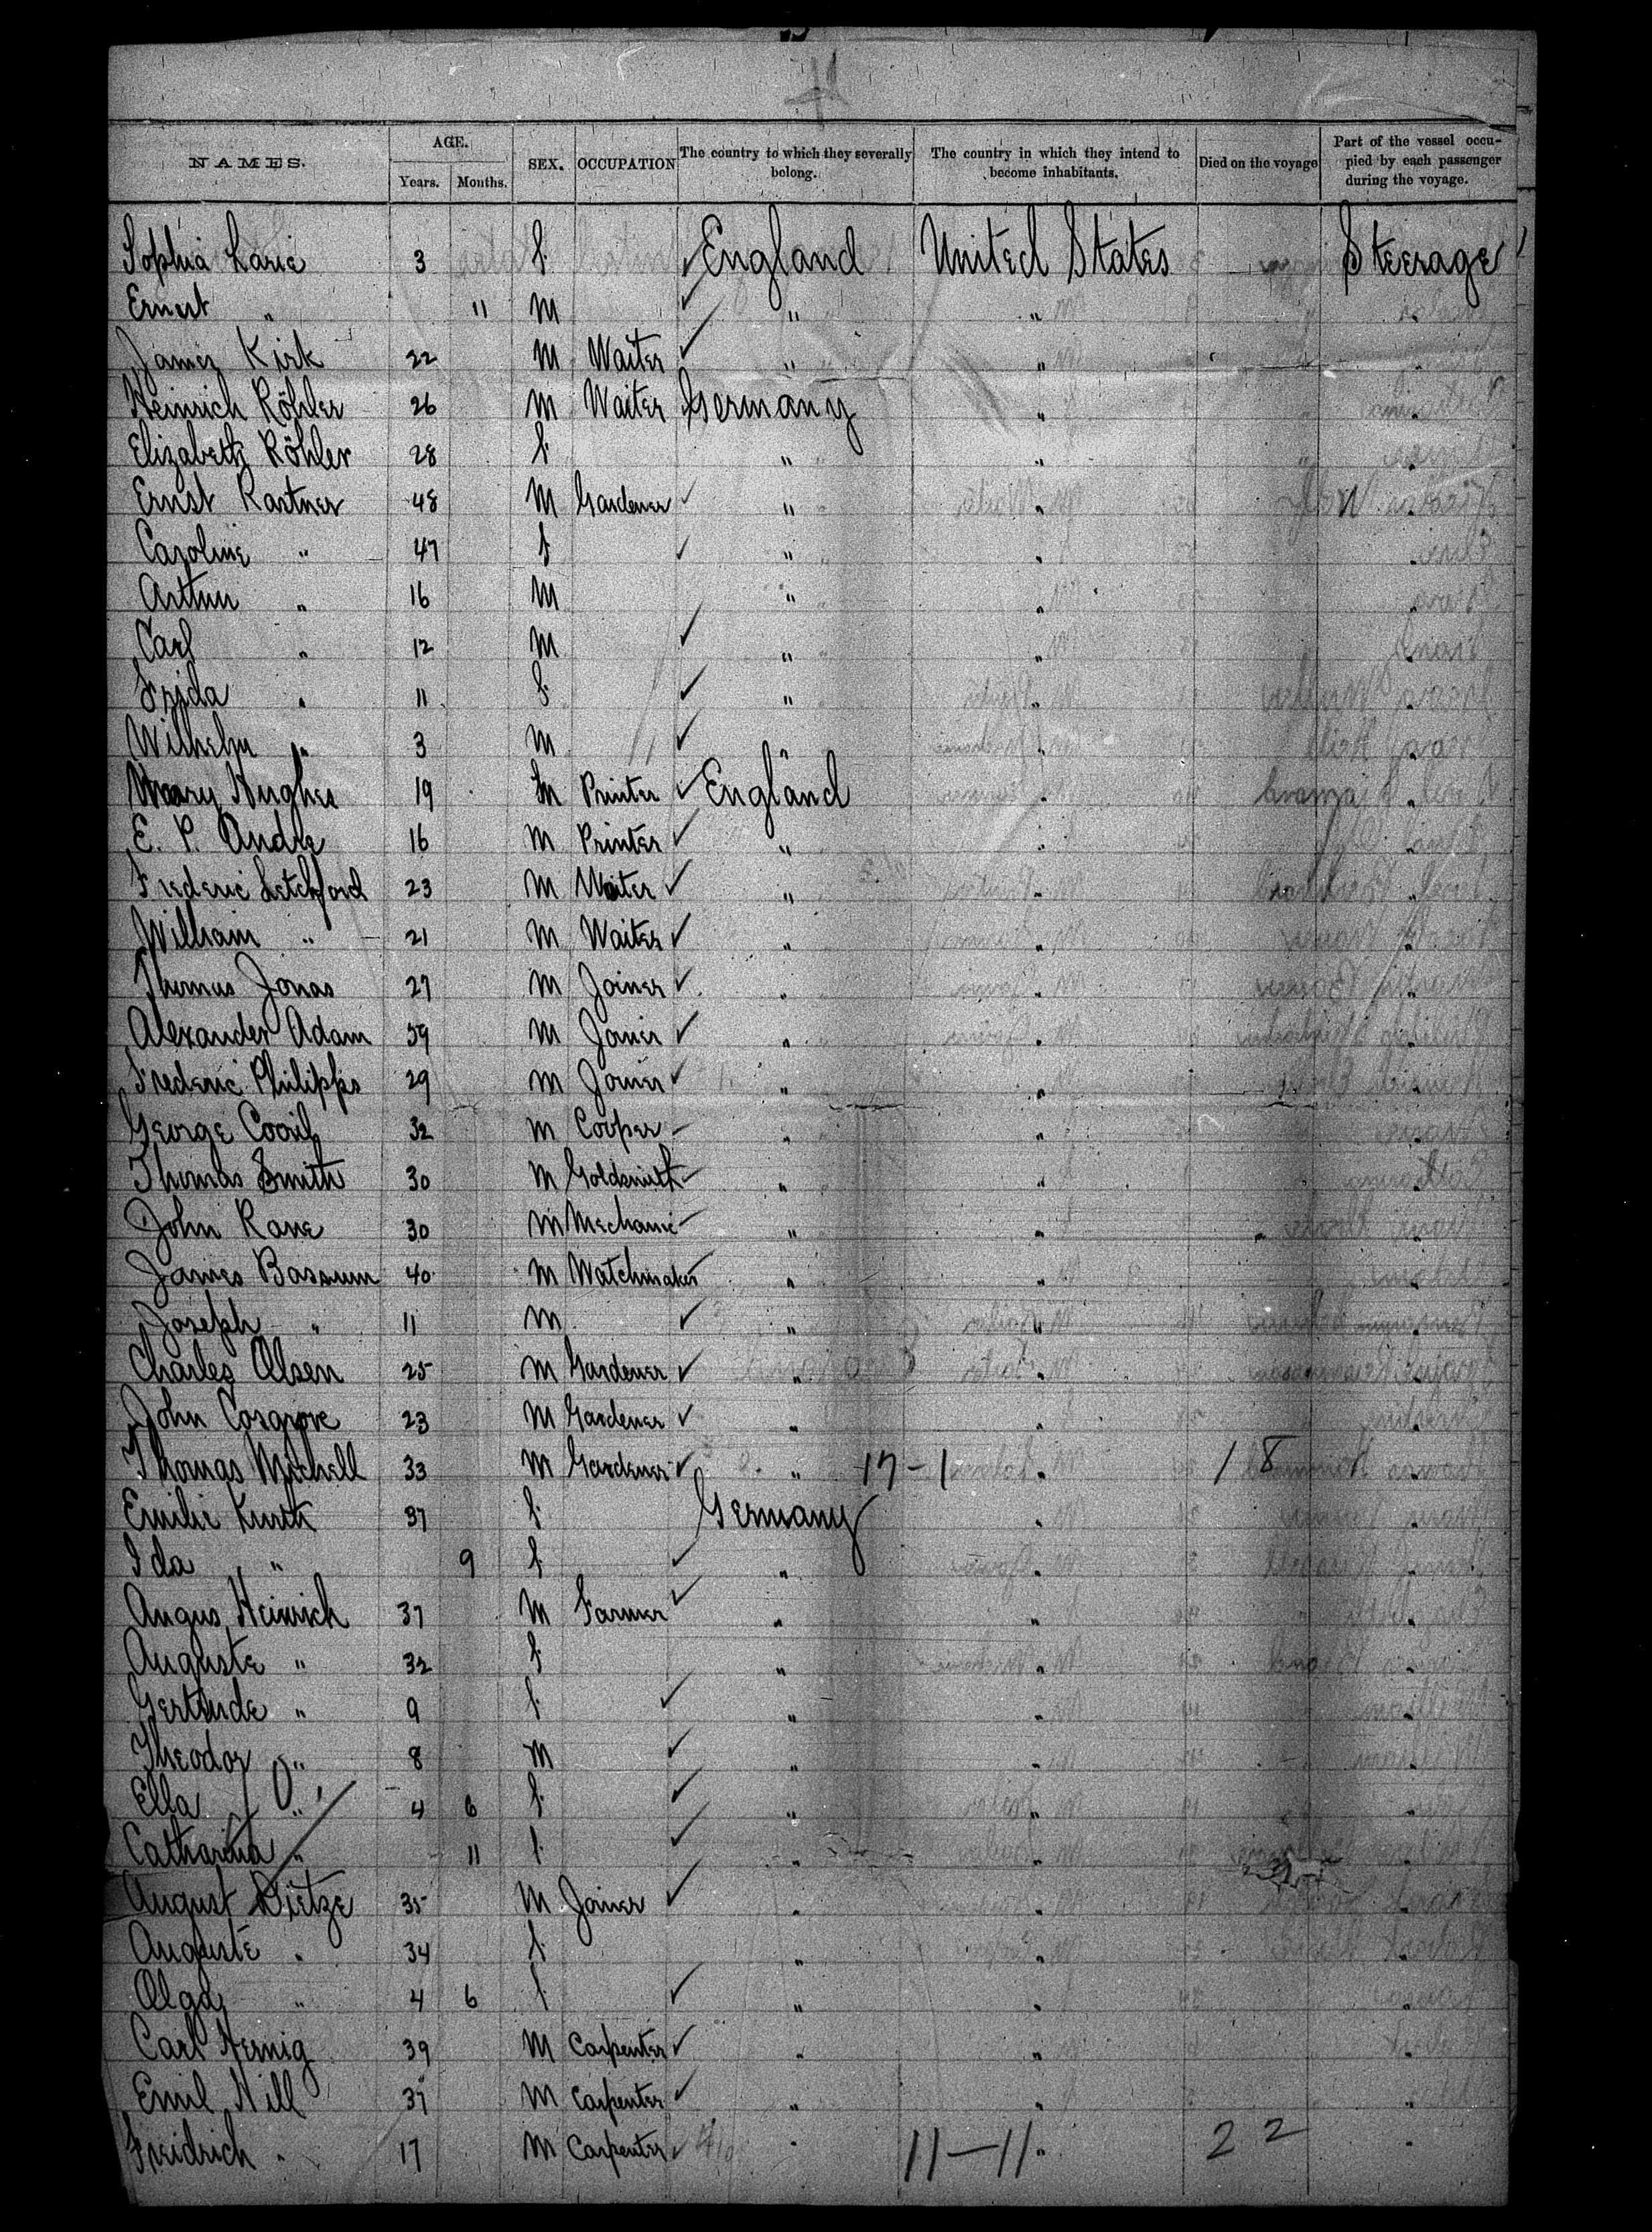 4
NAMES. AGE. Years. Months. SEX. OCCUPATION The country to which they severally belong. The country in which they intend to become inhabitants. Died on the voyage Part of the vessel occupied by each passenger during the voyage.
Sophia Larie 3 f. ✓ England United States Steerage
Ernest " 11 M ✓ " "
James Kirk 22 M Waiter ✓ " "
Heinrich Röhler 26 M Waiter Germany " "
Elizabeth Röhler 28 f. " " "
Ernst Kastner 48 M Gardener ✓ " " "
Caroline " 47 f ✓ " " "
Arthur " 16 M " " "
Carl " 12 M ✓ " " "
Frida " 11 f. ✓ " " "
Wilhelm " 3 M ✓ " " "
Hughes 19 M Printer ✓ England " "
E. P. Andre 16 M Printer ✓ " " "
Frederic Letchford 23 M Waiter ✓ " " "
William " 21 M Waiter ✓ " " "
Thomas Jonas 27 M Joiner ✓ " " "
Alexander Adam 59 M Joiner ✓ " " "
Frederic Philipps 29 M Joiner ✓ " " "
George 32 M Cooper " " "
Thomas Smith 30 M Goldsmith " " "
John Kane 30 M Mechanic " " "
James Bassum 40 M Watchmaker " " "
Joseph " 11 M ✓ " " "
Charles Olsen 25 M Gardener ✓ " " "
John Cosgrove 23 M Gardener ✓ " " "
Thomas Mitchell 33 M Gardener ✓ " 17-1 " 18 "
Emilie Kurth 37 f. Germany " "
Ida " 9 f. ✓ " " "
Angus Heinrich 37 M Farmer ✓ " " "
Auguste " 32 f " " "
Gertrude " 9 f. ✓ " " "
Theodor " 8 M ✓ " " "
Ella " 4 6 f. ✓ " " "
Catharina " 11 f. ✓ " " "
August Dietze 35 M Joiner ✓ " " "
Auguste " 34 f. " " "
Olga " 4 6 f ✓ " " "
Carl Hernig 39 M Carpenter ✓ " " "
Emil Hill 37 M Carpenter ✓ " " "
Freidrich " 17 M Carpenter ✓ " 11-11 " 22 "